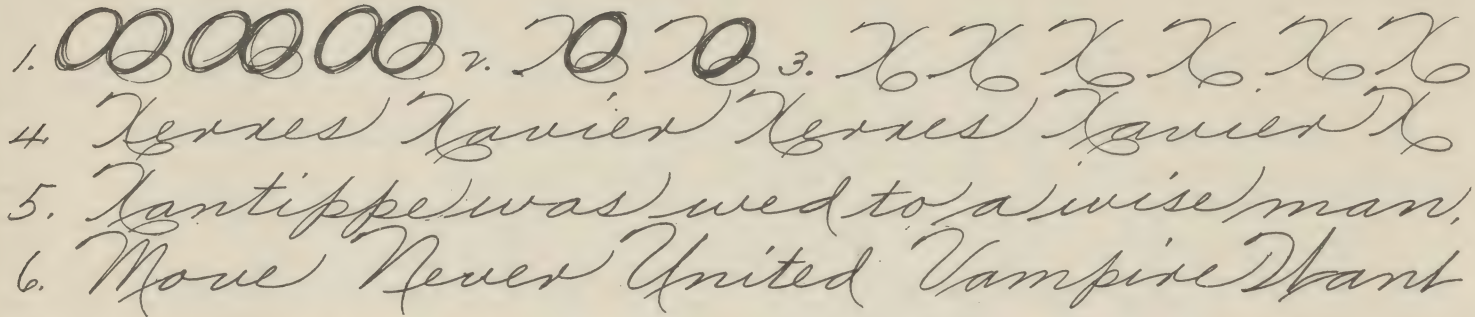 1. 2. X X 3. X X X X X X
4 Xerxes Xavier Xerxes Xavier X
5. Xantippe was wed to a wise man.
6. Move Never United Vampire Want